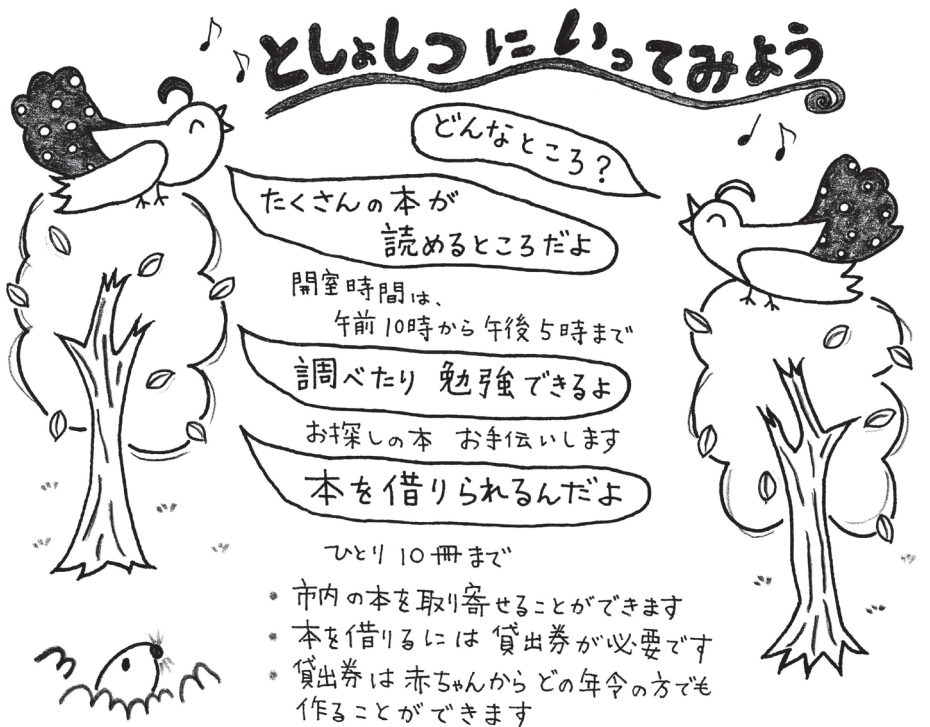 としょしつにいってみよう
どんなところ?
たくさんの本が
読めるところだよ
開室時間は、
午前10時から午後5時まで
調べたり 勉強できるよ
お探しの本 お手伝いします
本を借りられるんだよ
ひとり10冊まで
・市内の本を取り寄せることができます
・本を借りるには貸出券が必要です
・貸出券は赤ちゃんからどの年令の方でも
作ることができます